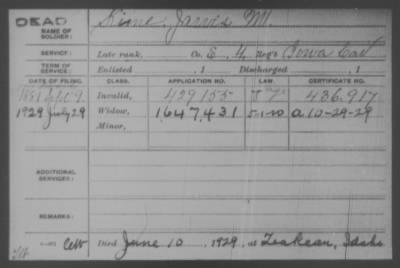 DEAD
NAME OF SOLDIER: Kime, Jarvis M.
SERVICE: Late rank, Co. E, 4, Reg't Iowa Cav
TERM OF SERVICE: Enlisted , 1 Discharged , 1
DATE OF FILING. CLASS. APPLICATION NO. LAW. CERTIFICATE NO.
1881 Sept 9. Invalid, 429155 486.917
1929 July 29 Widow, 1647,431 5-1-20 A.10-29-29
Minor,
ADDITIONAL SERVICES:
REMARKS:
Died June 10, 1929, at Teakean, Idaho